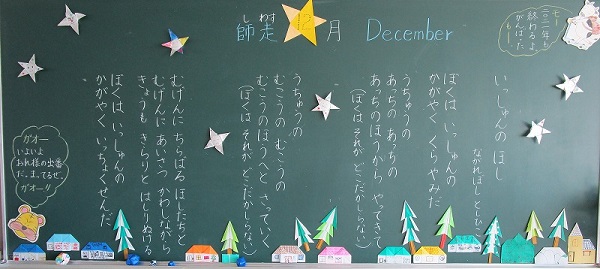 しわす
師走 12月 December
モー
二〇二一年も
終わるよ。
がんばった
モー!
いっしゅんの ほし
ながれぼし
ぼくは いっしゅんの
かがやく くらやみだ
うちゅうの
あっちの あっちの
あっちのほうから やってきて
(ぼくは それが どこだかしらない)
うちゅうの
むこうの むこうの
むこうのほうへと さっていく
(ぼくは それが どこだかしらない)
むげんに ちらばる ほしたちと
むげんに あいさつ かわしながら
きょうも きらりと はしりぬける
ぼくは いっしゅんの
かがやく いっちょくせんだ
ガオー
いよいよ
おれ様の出番
だ。まってるぜ。
ガオー!!